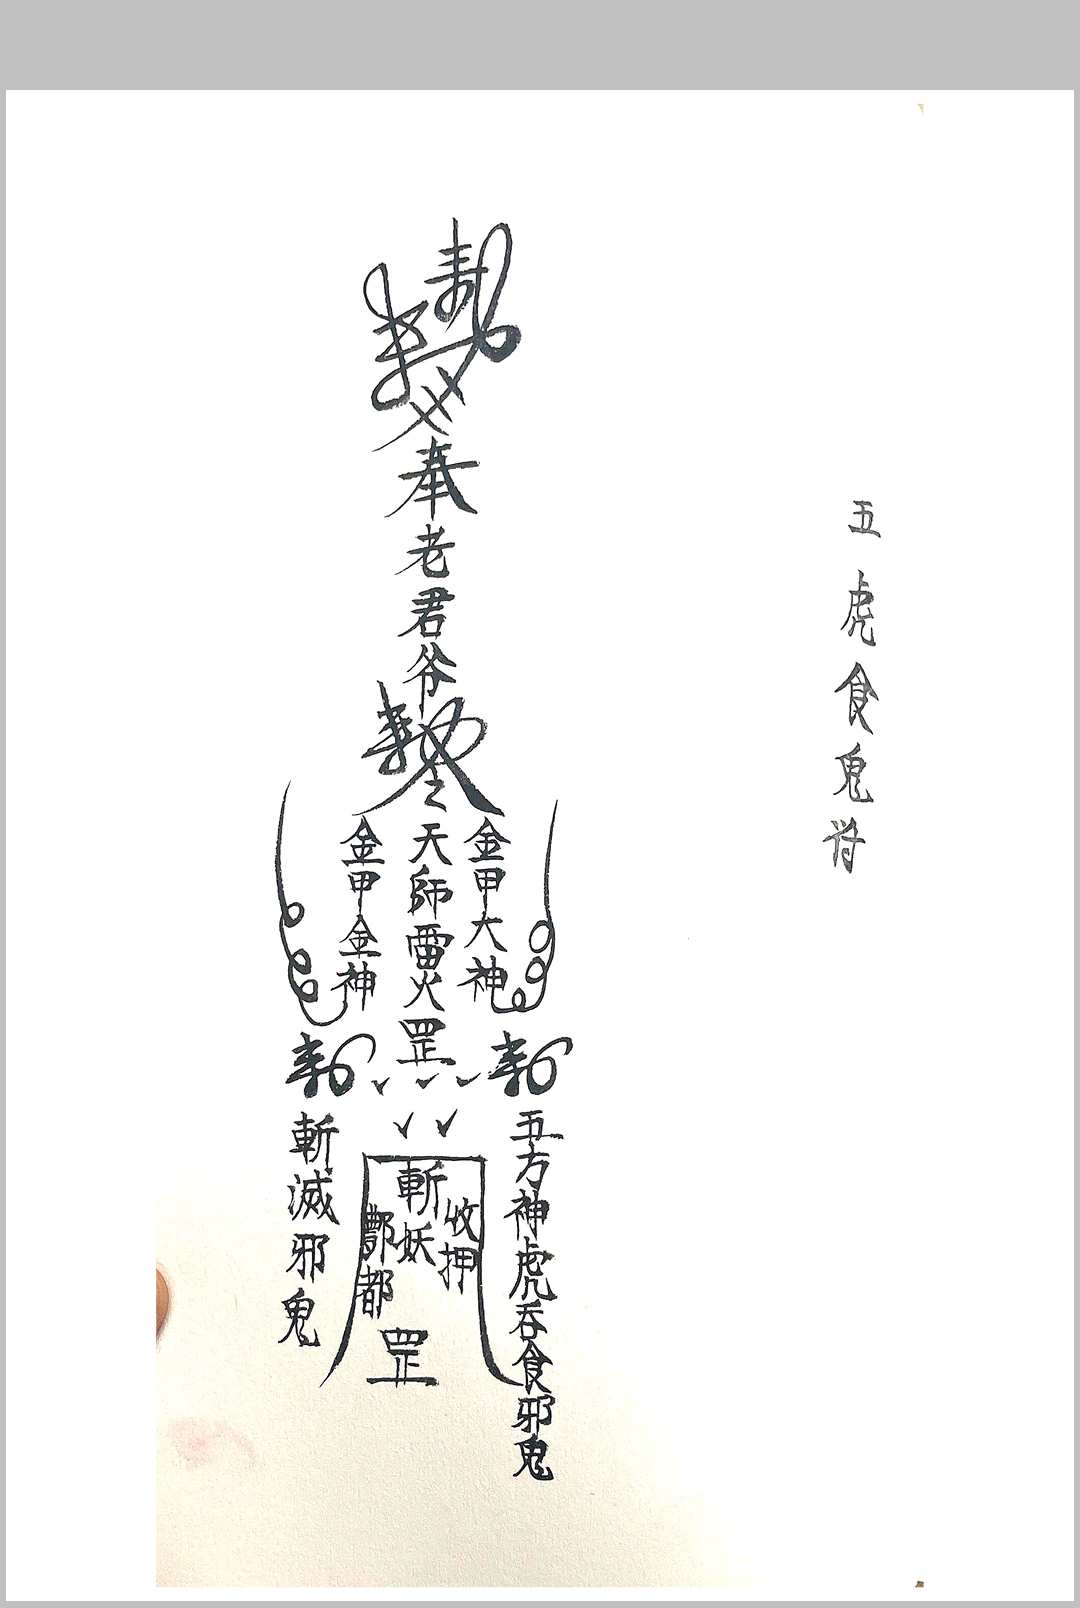 五虎食鬼符
勅勅
奉老君爺
勅令
金甲大神
天師雷火罡
金甲金神
勅五方神虎吞食邪鬼
勅斬滅邪鬼
收押
斬妖
酆都
罡